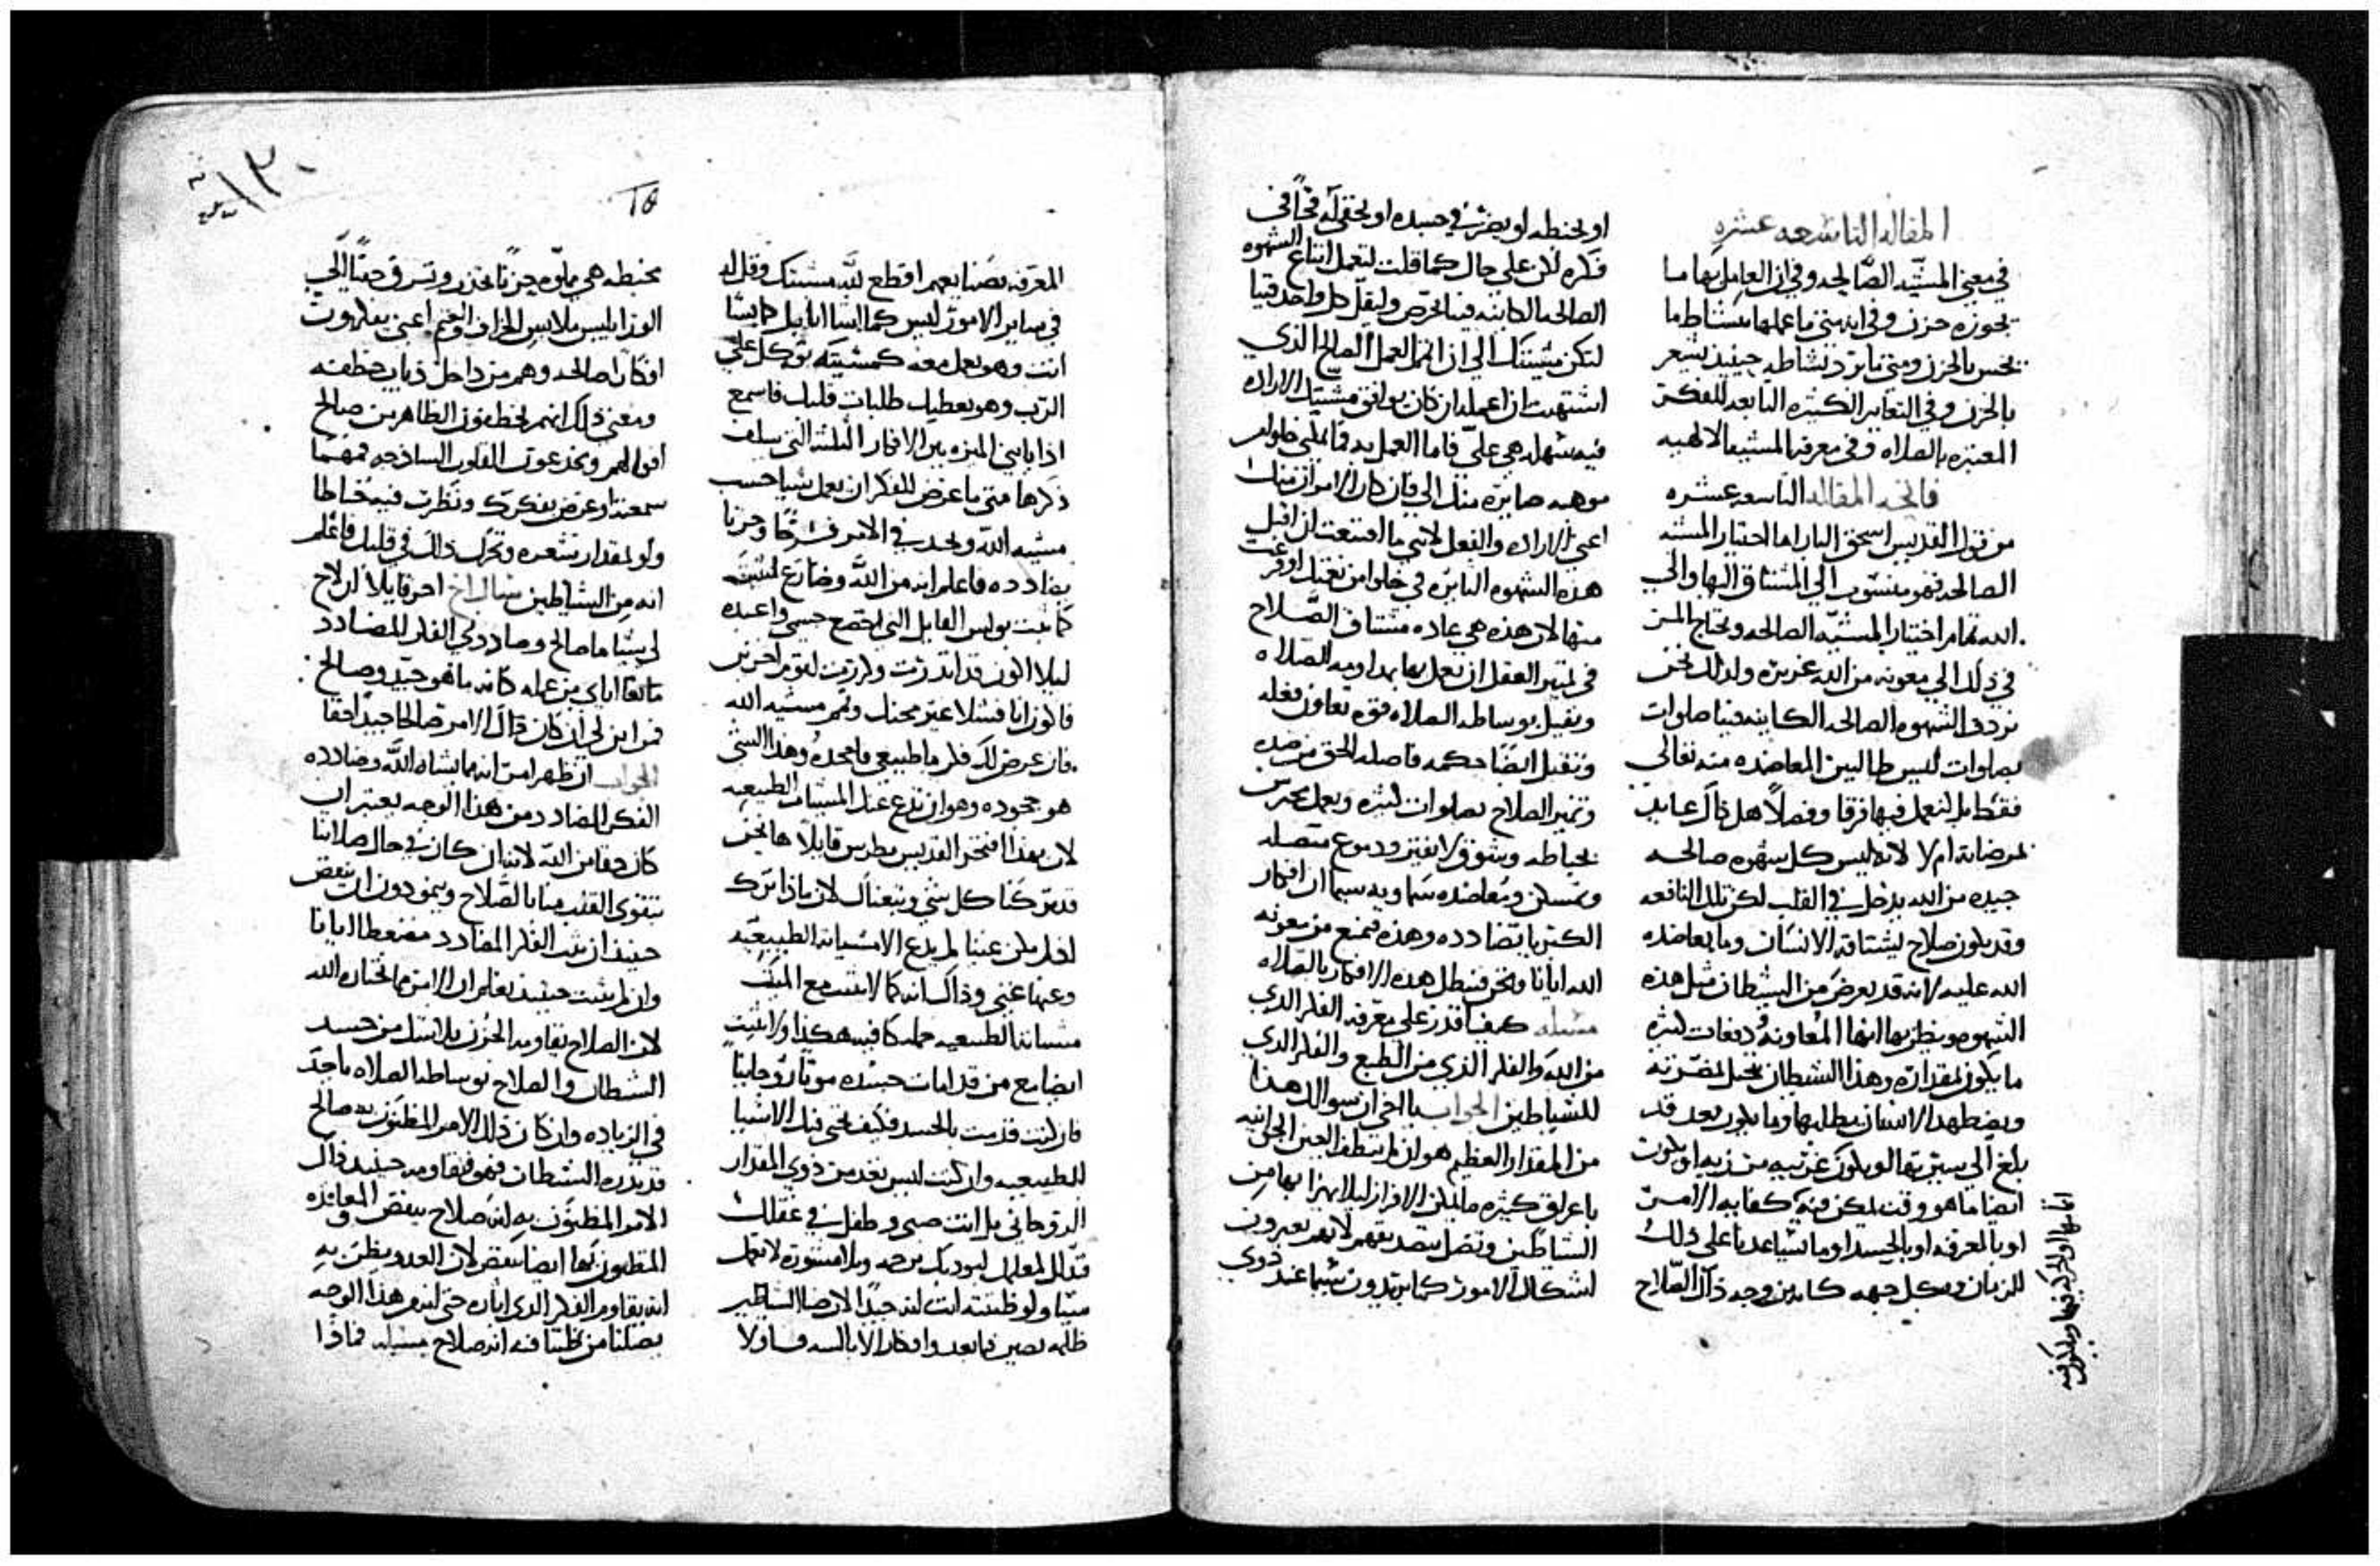 المقاله التاسعه عشره
في معنى المشيّه الصّالحه وفي ان العامل بها ما
يحوزه حزن وفي انه متى ما عملها بنشاط ما
يحس بالحزن ومتى ما برد نشاطه حينيذ يشعر
بالحزن وفي التعابير الكثيره التابعه للفكر
بالصلاه وفي معرفه المشيه الالهيه
فاتحه المقاله التاسعه عشره
من قول القديس اسحق البار اما اختيار المشيه
الصالحه فهو منسوب الى المشتاق اليها والى
الله تمام اختيار المشيّه الصالحه ويحتاج المر
في ذلك الى معونه من الله غزيره ولذلك نحن
نردف الشهوه الصالحه الكاينه فينا صلوات
بصلوات ليس طالبين المعاضده منه تعالى
فقط بل لنعمل فيها فرقا وفصلاً هل ذاك عايد
لمرضاته ام لا لانه ليس كل شهوه صالحه
جيده من الله يدخل في القلب لكن تلك النافعه
وقد يكون صلاح يشتاقه الانسان وما يعاضده
الله عليه لانه قد يعرض من الشيطان مثل هذه
الشهوه ويظن بها انها للمعاونه ودفعات كثيره
ما يكون لمقداره وهذا الشيطان يحيل لمضرته
ويضطهد الانسان بطلبها وما يكون بعد قد
بلغ الى سيرتها او يكون غريبه من زيه او يكون
ايضا ما هو وقت يمكن فيه كفايه الامر
او بالمعرفه او بالجسد او ما يساعدنا على ذلك
الزمان وبكل جهه كاين وجه ذاك الصّلاح
او يخبطه او يضره في جسده او يخفى له فخاً في
فكره لكن على حال كما قلت لنعمل اتباع الشهوه
الصالحه الكاينه فينا الحرص وليقل كل واحد فينا
لتكن مشيتك الى ان اتم العمل الصالح الذي
اشتهيت ان اعمله ان كان يوافق مشيتك الاراده
فيه سهله هي عليّ فاما العمل به فما يمكنني خلوا من
موهبه صايره منك الي فان كان الامران منك
اعني الاراده والفعل لانني ما اقتنعت ان اقبل
هذه الشهوه الثايره في خلوا من نعمتك او فزعت
منها لان هذه هي عاده مشتاق الصّلاح
في تمييز العقل ان يعمل بها بمداومه الصلاه
ويقبل بوساطه الصلاه قوه تعاون فعله
ونقبل ايضا حكمه فاصله الحق من ضده
وتميز الصلاح بصلوات كثيره وبعمل وبحرس
بحياطه وبشوق لا يفتر ودموع متصله
وتمسكن ومعاضده سماويه سيما ان افكار
الكبريا تضادده وهذه فتمنع من معونه
الله ايانا ونحن فنبطل هذه الافكار بالصلاه
مسله كيف اقدر على معرفه الفكر الذي
من الله والفكر الذي من الطبع والفكر الذي
للشياطين الجواب يا اخي ان سوالك هذا
من المقدار العظيم هو لان لم تنطف العين الجوانيه
باعراق كثيره ما يمكن الافراز ليلا يهزا بها من
الشياطين وتضل بصدقهم لانهم يغيرون
اشكال الامور كما يريدون سيما عند ذوي
المعرفه بصنايعهم اقطع لله مشيتك وقل له
في ساير الامور ليس كما اشا انا بل كما يشا
انت وهو يعمل معه كمشيته توكل على
الرب وهو يعطيك طلبات قلبك فاسمع
اذا يا بني الميزه بين الافكار الثلثه التي سلف
ذكرها متى ما عرض للفكر ان يعمل شيا حسب
مشيه الله ويجد في الامر فرحًا وحزنا
يضادده فاعلم انه من الله وضارع لمشيته
كما ثبت بولس القايل انني اقمع جسمي واعبده
ليلا اكون قد انذرت وكرزت لقوم اخرين
فاكون انا فشلا غير محنك وتمم مشيه الله
فان عرض لك فكر ما طبيعي فاجحده وهذا الشي
هو جحوده وهو ان تدع عنك المشيات الطبيعيه
لان بهذا افتخر القديس بطرس قايلاً ها نحن
قد تركنا كل شي وتبعناك لان ماذا ترك
وعنها عني وذاك انه كما لا تثبت مع الميت
ايضا مع من قد امات جسده موتًا روحانيًا
فان كنت قد مت بالجسد فكيف تحي فيك الاشيا
الطبيعيه وان كنت ليس بعد من ذوي المقدار
الروحاني بل انت صبي وطفل في عقلك
فذلل لمعلمك ليودبك برحمه وبلا مشوره لا تعمل
شيا ولو ظننته انت انه جيدًا لان ضيا الشياطين
ظلمه يصير فيما بعد وافكار الابالسه فاولا
مخبطه هي مملوه حزنًا تحذر وتسرق حينًا الى
الورا ليس ملابس الخراف والغنم اعني يفكرون
افكارًا صالحه وهم من داخل ذياب خطفه
ومعنى ذلك انهم يخطفون الظاهر من صالح
اقوالهم ويخدعون القلوب الساذجه فمهما
سمعت او عرض بفكرك ونظرت فيه خباطا
ولو لمقدار شعره وتحرك ذلك في قلبك فاعلم
انه من الشياطين سال اخ اخر قايلاً ان لاح
لي شيا ما صالح وصاددني الفكر المضادد
مانعا اياي من عمله كانه ما هو جيّد وصالح
فمن اين لي ان كان ذاك الامر صالحا جيدًا حقا
الجواب ان ظهر امر انه ما يشاه الله وضادده
الفكر المضادد من هذا الوجه يعتبر ان
كان حقا من الله لاننا ان كان في حال صلاتنا
يتقوى القلب منا بالصّلاح وينمو دون ان ينقص
حينيذ ان ثبت الفكر المضادد مضغطا ايانا
وان لم يثبت حينيذ نعلم ان الامر مما يختاره الله
لان الصلاح يقاومه الحزن بلا شك من حسد
الشيطان والصلاح بوساطه الصلاه ياخذ
في الزياده وان كان ذلك الامر المظنون به صالح
قد بذره الشيطان فهو فيقاومه حينيذ ذاك
الامر المظنون به انه صلاح ينقص والمعانده
المظنون بها ايضا تنقص لان العدو يظن به
انه يقاوم الفكر الذي اثاره حتى انه من هذا الوجه
يضلنا من ظننا فيه انه صلاح مسله فماذا